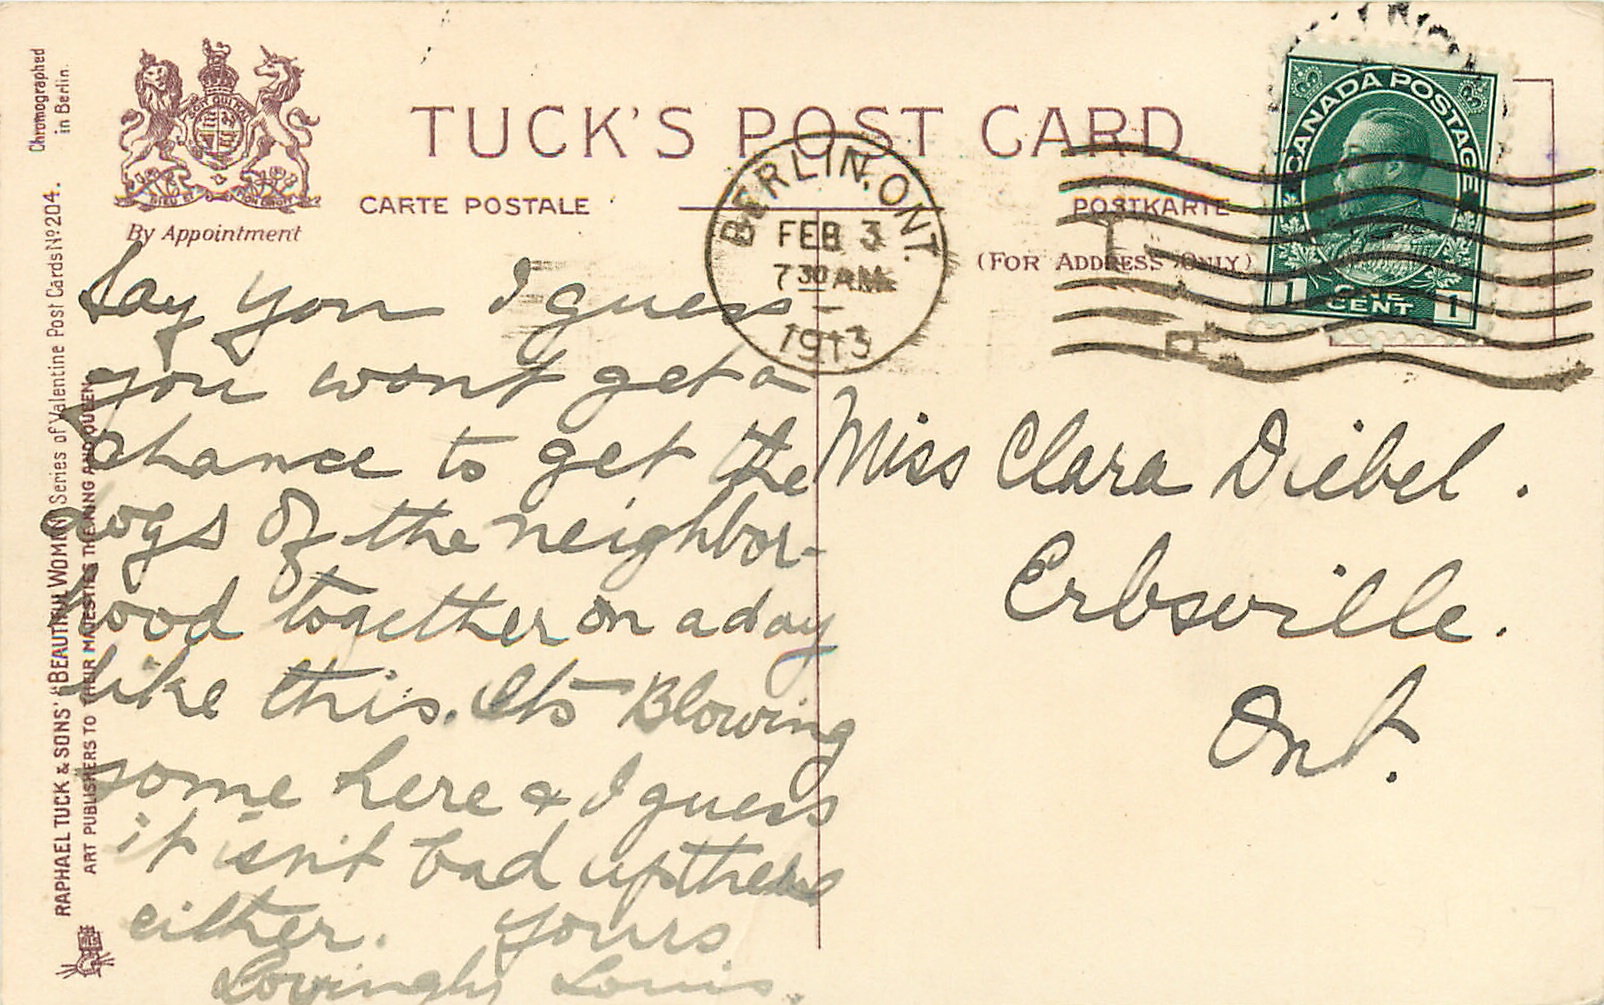 Chromographed
in Berlin.
DIEU ET MON DROIT
By Appointment
TUCK'S POST CARD
CARTE POSTALE
POSTKARTE
(FOR ADDRESS ONLY)
BERLIN, ONT.
FEB 3
7 30 AM
1913
CANADA POSTAGE
1 ONE CENT 1
RAPHAEL TUCK & SONS' "BEAUTIFUL WOMEN" Series of Valentine Post Cards Nº 204.
ART PUBLISHERS TO THEIR MAJESTIES THE KING AND QUEEN.
Say you I guess
you wont get a
chance to get the
dogs of the neighbor-
hood together on a day
like this. Its Blowing
some here & I guess
it isn't bad up there
either. Yours
Lovingly Louis.
Miss Clara Diebel.
Erbsville.
Ont.